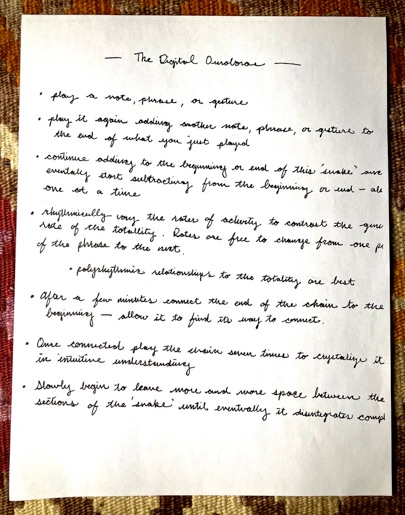 — The Digital Ouroboros —
• play a note, phrase, or gesture
• play it again adding another note, phrase, or gesture to
the end of what you just played
• continue adding to the beginning or end of this 'snake' and
eventually start subtracting from the beginning or end – all
one at a time
• rhythmically vary the rates of activity to contrast the
rate of the totality. Rates are free to change from one
of the phrase to the next.
• polyrhythmic relationships to the totality are best
• After a few minutes connect the end of the chain to the
beginning — allow it to find its way to connect.
• Once connected play the chain seven times to crystalize it
in intuitive understanding
• Slowly begin to leave more and more space between the
sections of the 'snake' until eventually it disintegrates